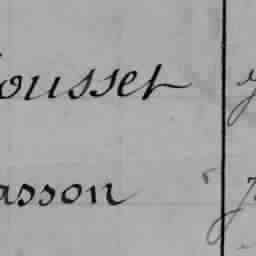 ousset
asson